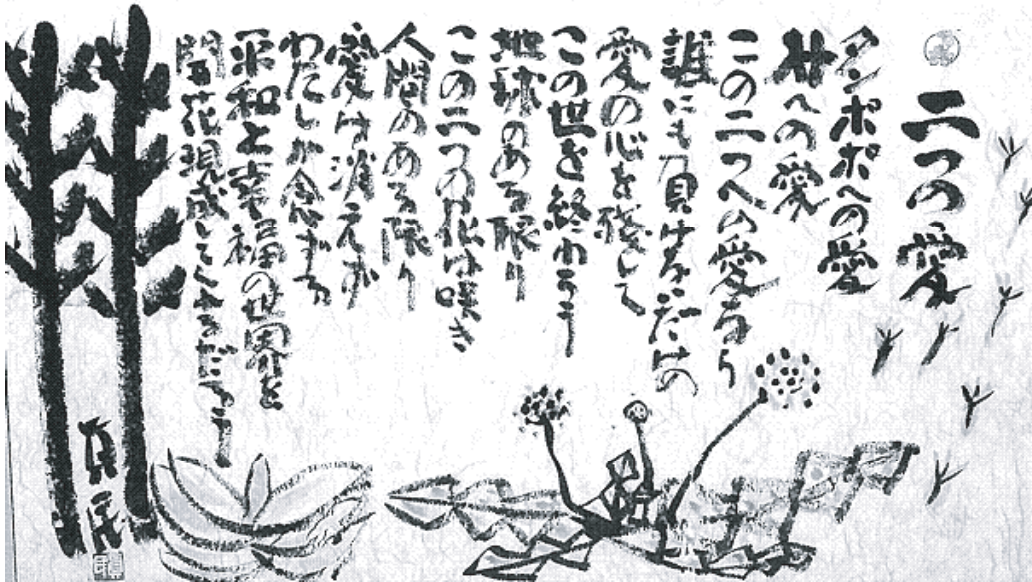 二つの愛
タンポポへの愛
朴への愛
この二つへの愛なら
誰にも負けないだけの
愛の心を残して
この世を終わろう
地球のある限り
この二つの花は咲き
人間のある限り
愛は消えず
わたしが念ずる
平和と幸福の世界を
開花現成してくれるだろう
真民